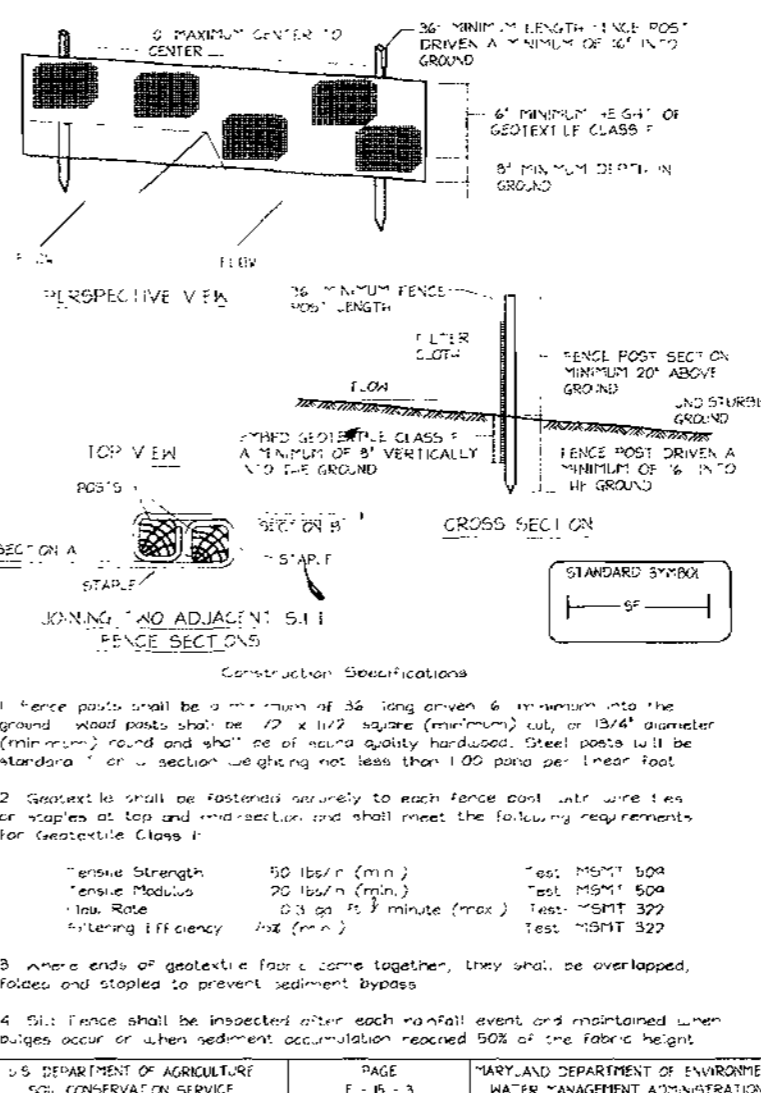 MAXIMUM CENTER TO
CENTER
36" MINIMUM LENGTH FENCE POST
DRIVEN A MINIMUM OF 16" INTO
GROUND
MINIMUM HEIGHT OF
GEOTEXTILE CLASS F
8" MINIMUM DEPTH IN
GROUND
FLOW
FLOW
PERSPECTIVE VIEW
36" MINIMUM FENCE
POST LENGTH
FILTER
CLOTH
FENCE POST SECTION
MINIMUM 20" ABOVE
GROUND
FLOW
UNDISTURBE
GROUND
EMBED GEOTEXTILE CLASS F
A MINIMUM OF 8" VERTICALLY
INTO THE GROUND
FENCE POST DRIVEN A
MINIMUM OF 16" INTO
THE GROUND
TOP VIEW
POSTS
SECTION B
SECTION A
STAPLE
STAPLE
CROSS SECTION
JOINING TWO ADJACENT SILT
FENCE SECTIONS
STANDARD SYMBOL
SF
Construction Specifications
1 Fence posts shall be a minimum of 36 long driven 16 minimum into the
ground Wood posts shall be square (minimum) cut, or 13/4" diameter
(minimum) round and shall be of sound quality hardwood. Steel posts will be
standard T or U section weighting not less than 1.00 pond per linear foot
2 Geotextile shall be fastened securely to each fence post with wire ties
or staples at top and mid-section and shall meet the following requirements
for Geotextile Class F:
Tensile Strength 50 lbs/in (min.) Test MSMT 509
Tensile Modulus 20 lbs/in (min.) Test MSMT 509
Flow Rate 0.3 gal ft minute (max.) Test MSMT 322
Filtering Efficiency 75% (min.) Test MSMT 322
3 Where ends of geotextile fabric come together, they shall be overlapped,
folded and stapled to prevent sediment bypass
4 Silt Fence shall be inspected after each rainfall event and maintained when
bulges occur or when sediment accumulation reached 50% of the fabric height
U.S. DEPARTMENT OF AGRICULTURE
SOIL CONSERVATION SERVICE
PAGE
E - 15 - 3
MARYLAND DEPARTMENT OF ENVIRONME
WATER MANAGEMENT ADMINISTRATION